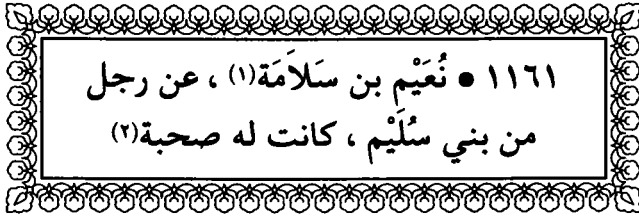 ١١٦١ • نُعَيْم بن سَلاَمَة(١) ، عن رجل
من بني سُلَيْم ، كانت له صحبة(٢)